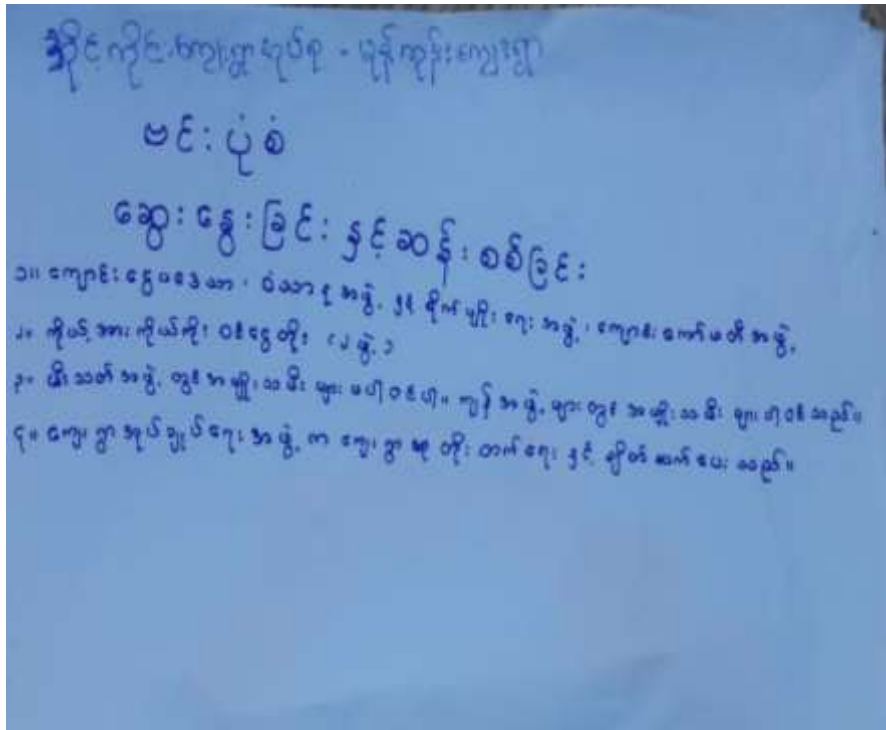 ကျေးရွာအုပ်စု - ပုန်ကုန်းကျေးရွာ
ဗင်းပုံစံ
ဆွေးနွေးခြင်း နှင့်ဆန်းစစ်ခြင်း
၁။ ကျောင်း ငွေပဒေသာ၊ ဝံသာနုအဖွဲ့၊ ၅၄ စိုက်ပျိုးရေးအဖွဲ့၊ ကျောင်းကော်မတီအဖွဲ့
၂။ ကိုယ့်အားကိုယ်ကိုး ဝင်ငွေတိုး (၂ဖွဲ့)
၃။ မီးသတ်အဖွဲ့တွင် အမျိုးသမီးများ မပါဝင်ပါ။ ကျန်အဖွဲ့များတွင် အမျိုးသမီးများ ပါဝင်သည်။
၄။ ကျေးရွာအုပ်ချုပ်ရေးအဖွဲ့က ကျေးရွာ တိုးတက်ရေးနှင့် ချိတ်ဆက်ပေးသည်။